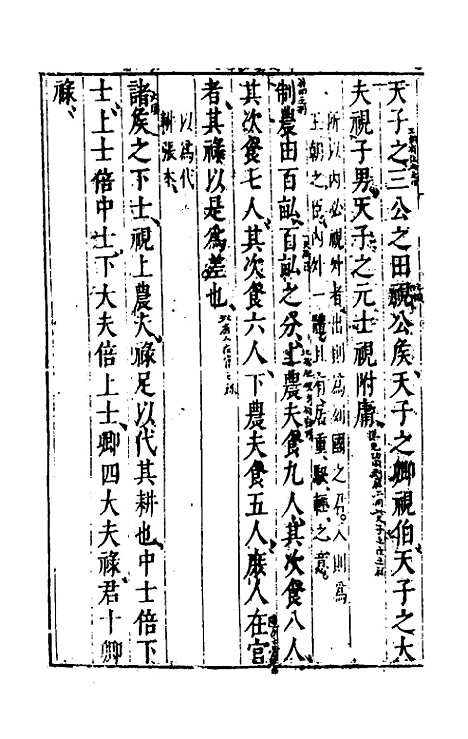 天子之三公之田視公矦天子之卿視伯天子之大
夫視子男天子之元士視附庸
所以内必視外者出則爲列國之君入則爲
王朝之臣内外一體且有居重馭輕之意
制農田百畝百畝之分上農夫食九人其次食八人
其次食七人其次食六人下農夫食五人庶人在官
者其祿以是爲差也
以爲代
耕張本
諸矦之下士視上農夫祿足以代其耕也中士倍下
士上士倍中士下大夫倍上士卿四大夫祿君十卿
祿